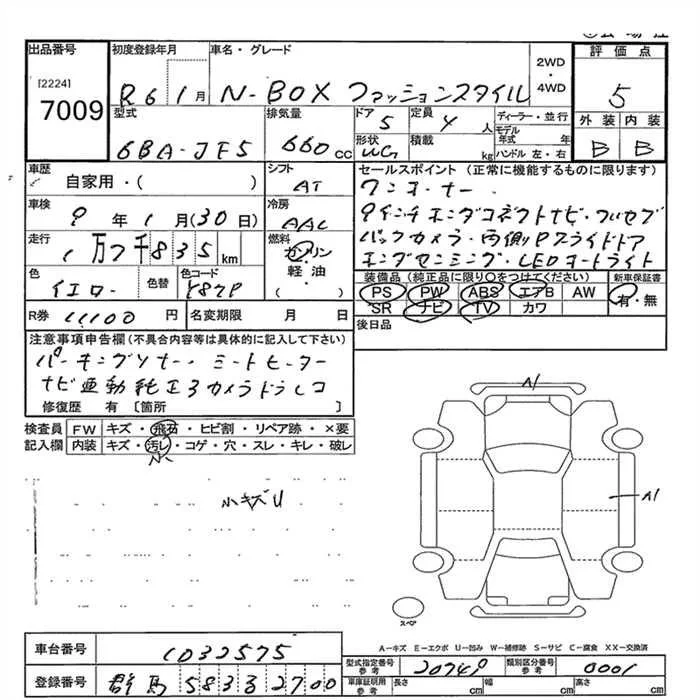 出品番号 初度登録年月 車名・グレード 2WD・4WD 評価点
[2224]
7009 R6 1月 N-BOX ファッションスタイル 5
型式 排気量 ドア 定員 ディーラー・並行 外装 内装
6BA-JF5 660cc 5 4人 モデル年式 年 B B
形状 積載 ハンドル 左・右
WG kg
車歴 シフト セールスポイント (正常に機能するものに限ります)
自家用・( ) AT ワンオーナー
車検 冷房 9インチホンダコネクトナビ・フルセグ
9年1月(30日) AAC バックカメラ・両側Pスライドドア
走行 燃料 ホンダセンシング・LEDヘッドライト
1万7千835km ガソリン
軽油
( )
色 色替 色コード 装備品(純正品に限り○をつけてください) 新車保証書
イエロー PS PW ABS エアB AW 有・無
SR ナビ TV カワ
R券 11100円 名変期限 月 日 後日品
注意事項申告欄(不具合内容等は具体的に記入して下さい)
パーキングセンサー シートヒーター
ナビ連動純正カメラドラレコ
修復歴 有 〔箇所 〕
検査員記入欄 FW キズ・飛石・ヒビ割・リペア跡・×要
内装 キズ・汚レ・コゲ・穴・スレ・キレ・破レ
小
小キズU
A1
A1
スペア
A-キズ E-エクボ U-凹み W-補修跡 S-サビ C-腐食 XX-交換済
車台番号 1032575
型式指定番号 参考 20749 類別区分番号 参考 0001
登録番号 群馬 583 2700
車庫証明用 参考 長さ cm 幅 cm 高さ cm